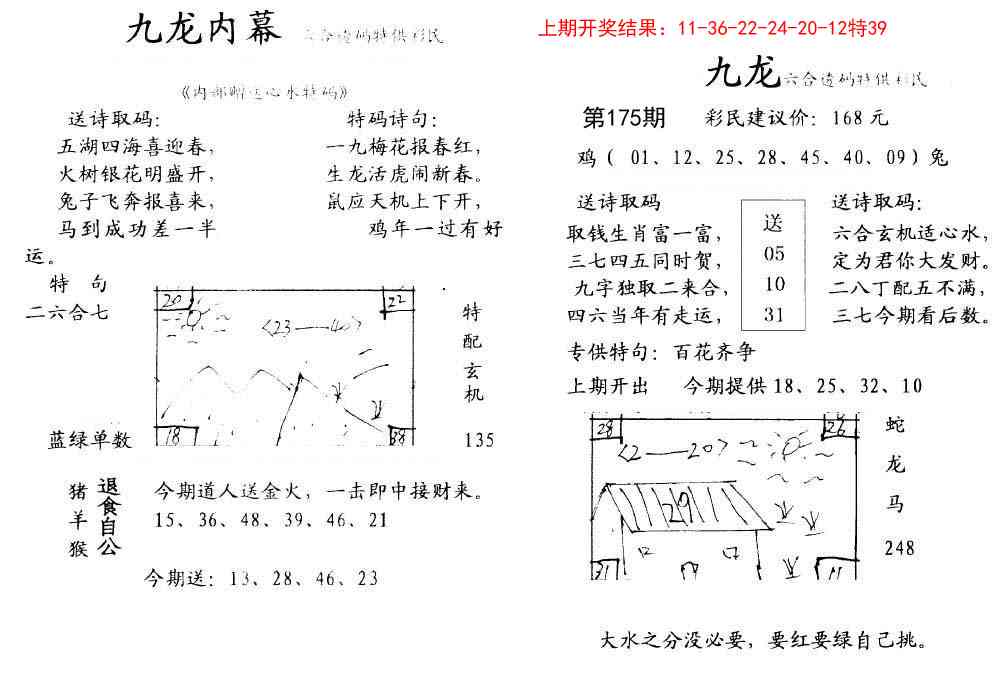 九龙内幕 六合透码特供彩民
《内部赠送心水特码》
送诗取码：
五湖四海喜迎春，
火树银花明盛开，
兔子飞奔报喜来，
马到成功差一半
运。
特码诗句：
一九梅花报春红，
生龙活虎闹新春。
鼠应天机上下开，
鸡年一过有好
特 句
二六合七
蓝绿单数
20
22
<23—40>
18
38
特
配
玄
机
135
猪
羊
猴
退食自公
今期道人送金火，一击即中接财来。
15、36、48、39、46、21
今期送：13、28、46、23
上期开奖结果：11-36-22-24-20-12特39
九龙六合透码特供彩民
第175期 彩民建议价：168元
鸡（ 01、12、25、28、45、40、09）兔
送诗取码
取钱生肖富一富，
三七四五同时贺，
九字独取二来合，
四六当年有走运，
送
05
10
31
送诗取码：
六合玄机适心水，
定为君你大发财。
二八丁配五不满，
三七今期看后数。
专供特句：百花齐争
上期开出 今期提供18、25、32、10
28
26
<2—20>
29
31
11
蛇
龙
马
248
大水之分没必要，要红要绿自己挑。